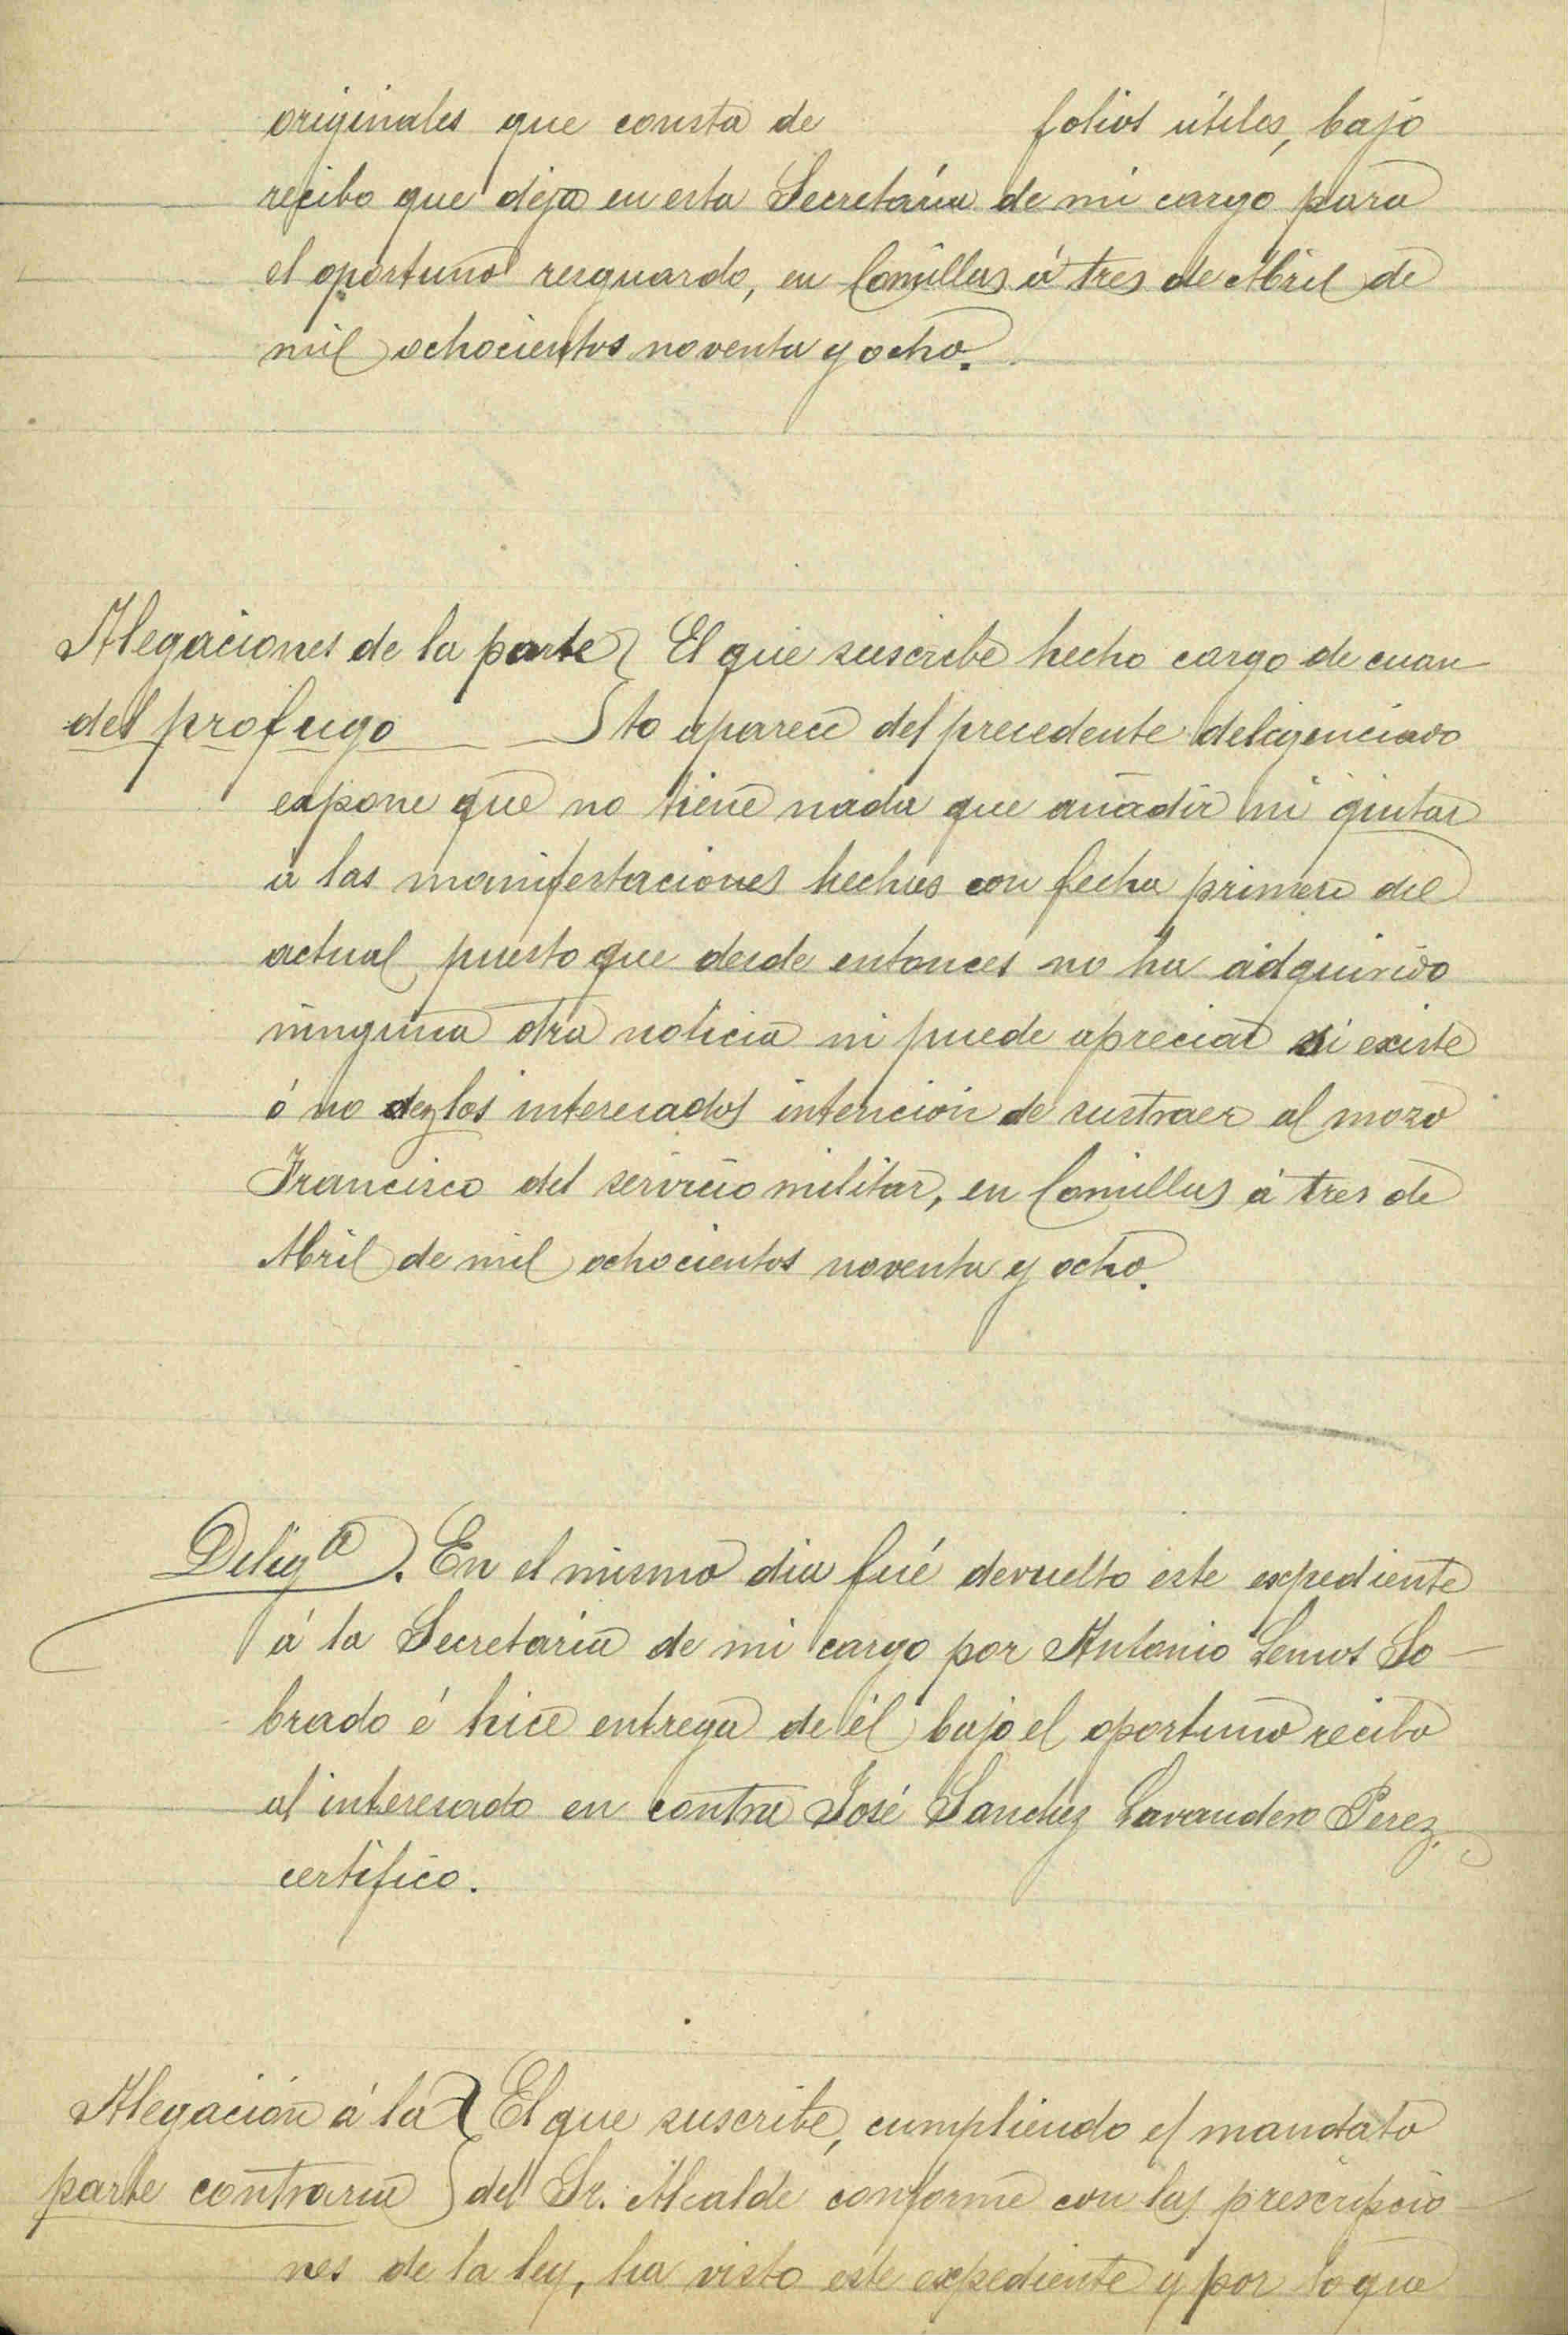 originales que consta de folios útiles, bajo
recibo que deja en esta Secretaría de mi cargo para
el oportuno resguardo, en Comillas á tres de Abril de
mil ochocientos noventa y ocho.
Alegaciones de la parte } El que suscribe hecho cargo de cuan-
del profugo } to aparece del precedente deligenciado
expone que no tiene nada que añadir ni quitar
á las manifestaciones hechas con fecha primero del
actual, puesto que desde entonces no ha adquirido
ninguna otra noticia ni puede apreciar si existe
ó no de los interesados intencion de sustraer al mozo
Francisco del servicio militar, en Comillas á tres de
Abril de mil ochocientos noventa y ocho.
Delig.a). En el mismo dia fué devuelto este expediente
á la Secretaria de mi cargo por Antonio Lemos So-
brado é hice entrega de él bajo el oportuno recibo
al interesado en contra José Sanchez Lavandero Perez,
certifico.
Alegación á la } El que suscribe, cumpliendo el mandato
parte contraria } del Sr. Alcalde conforme con las prescripcio-
nes de la ley, ha visto este expediente y por lo que